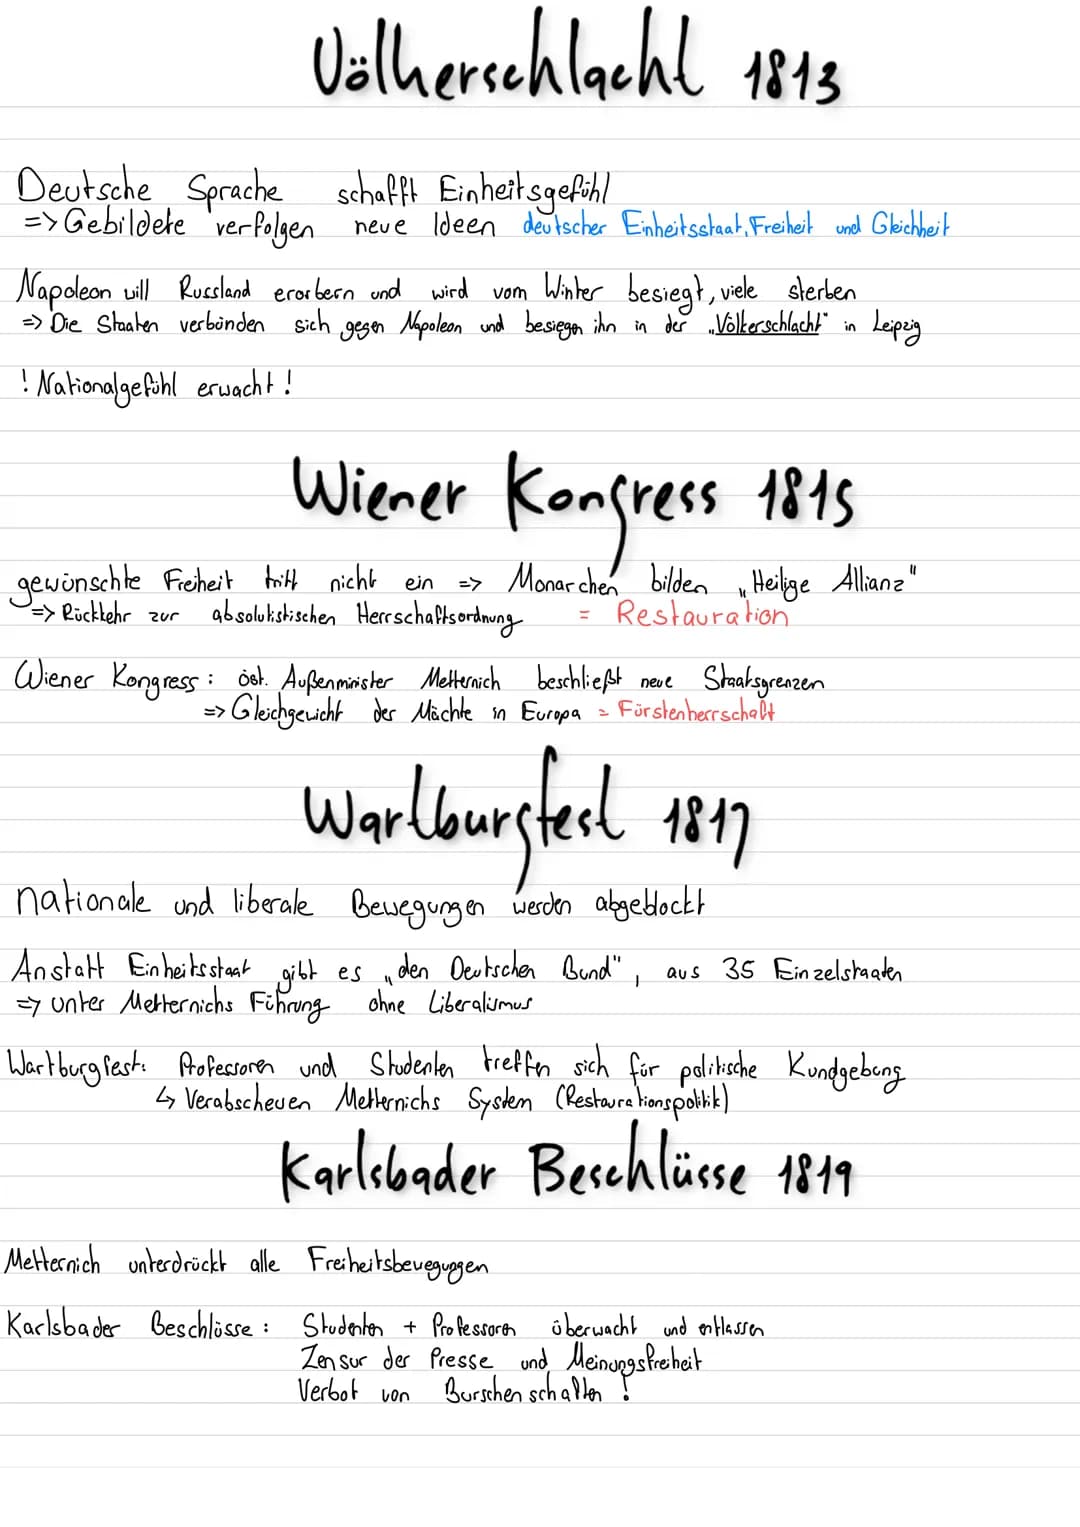 Völkerschlacht 1813
Deutsche Sprache schafft Einheitsgefühl
=> Gebildete verfolgen neue Ideen deutscher Einheitsstaat, Freiheit und Gleichheit
Napoleon will Russland erorbern und wird vom Winter besiegt, viele sterben
=> Die Staaten verbünden sich gegen Napoleon und besiegen ihn in der „Völkerschlacht" in Leipzig
! Nationalgefühl erwacht !
Wiener Kongress 1815
gewünschte Freiheit tritt nicht ein => Monarchen bilden „Heilige Allianz"
=> Rückkehr zur absolutistischen Herrschaftsordnung = Restauration
Wiener Kongress : öst. Außenminister Metternich beschließt neue Staatsgrenzen
=> Gleichgewicht der Mächte in Europa = Fürstenherrschaft
Wartburgfest 1817
nationale und liberale Bewegungen werden abgeblockt
Anstatt Einheitsstaat gibt es „den Deutschen Bund", aus 35 Einzelstaaten
=> unter Metternichs Führung ohne Liberalismus
Wartburgfest: Professoren und Studenten treffen sich für politische Kundgebung
↳ Verabscheuen Metternichs System (Restaurationspolitik)
Karlsbader Beschlüsse 1819
Metternich unterdrückt alle Freiheitsbewegungen
Karlsbader Beschlüsse : Studenten + Professoren überwacht und entlassen
Zensur der Presse und Meinungsfreiheit
Verbot von Burschenschaften !